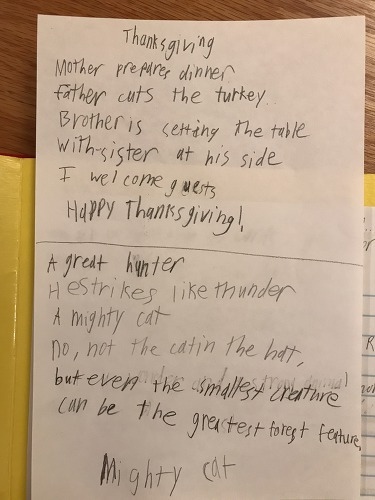 Thanksgiving
Mother prepares dinner
father cuts the turkey
Brother is setting the table
with-sister at his side
I welcome guests
Happy Thanksgiving!
A great hunter
He strikes like thunder
A mighty cat
no, not the cat in the hat,
but even the smallest creature
can be the greatest forest feature,
Mighty cat